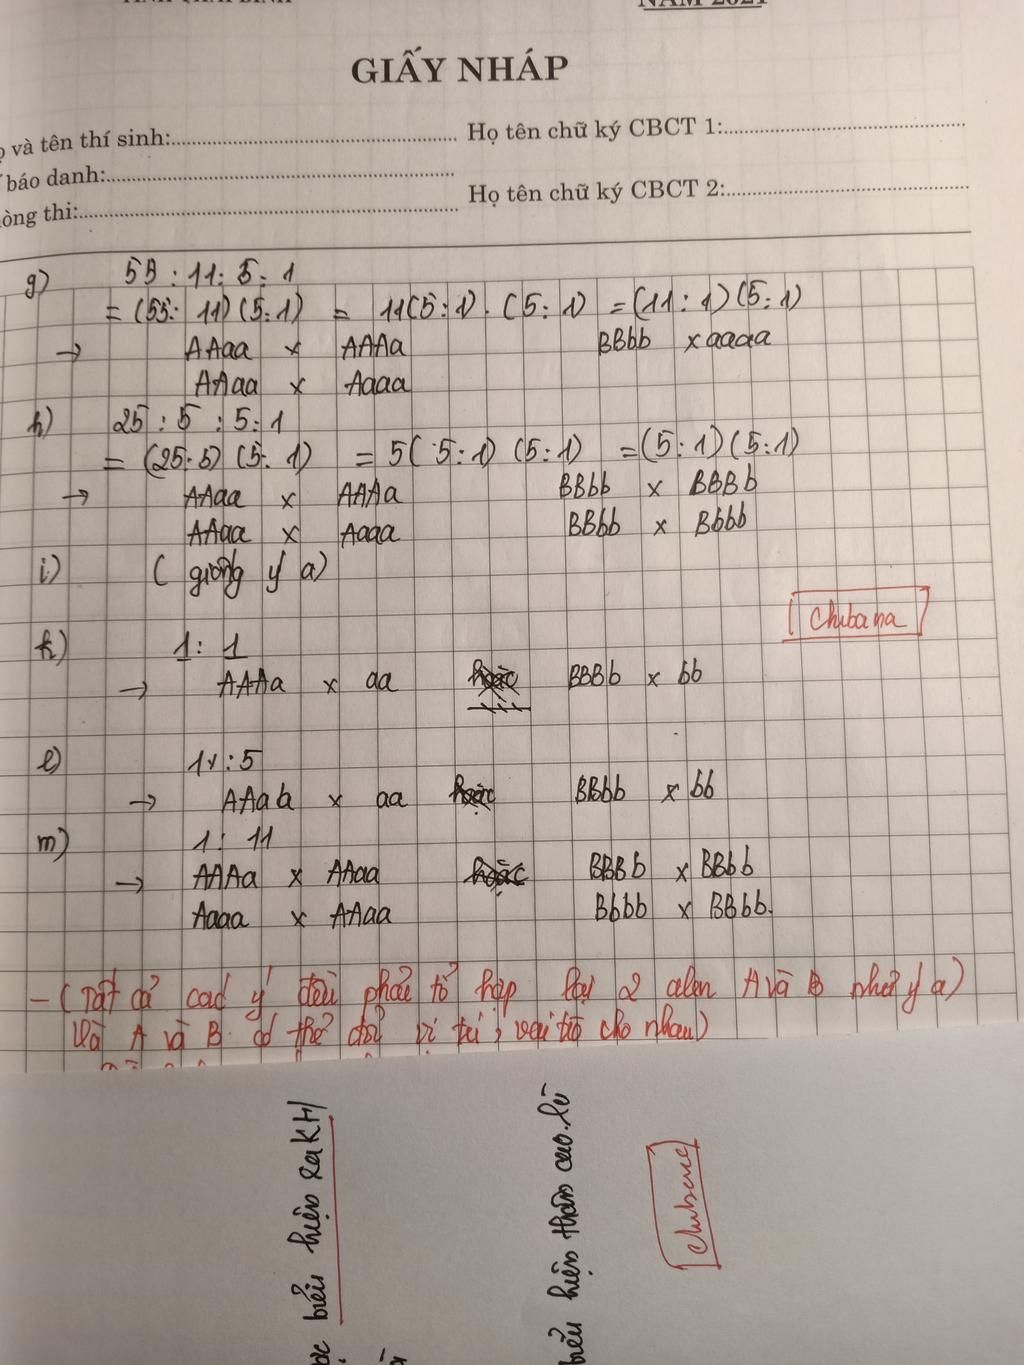 NĂM 2021
GIẤY NHÁP
và tên thí sinh:
Họ tên chữ ký CBCT 1:
báo danh:
Họ tên chữ ký CBCT 2:
òng thi:
g) 55 : 11 : 5 : 1
= (55 : 11) (5 : 1) = 11(5 : 1) . (5 : 1) = (11 : 1) (5 : 1)
→ AAaa x AAAa BBbb x aaaa
AAaa x Aaaa
h) 25 : 5 : 5 : 1
= (25 : 5) (5 : 1) = 5(5 : 1) (5 : 1) = (5 : 1) (5 : 1)
→ AAaa x AAAa BBbb x BBBb
AAaa x Aaaa BBbb x Bbbb
i) (giống ý a)
Chibana
k) 1 : 1
→ AAAa x aa BBBb x bb
l) : 5
→ x aa BBbb x bb
m) 1 : 11
→ AAAa x AAaa BBBb x BBbb
Aaaa x AAaa Bbbb x BBbb.
- (Tất cả ý đều phải tổ hợp lại 2 alen A và B như ý a)
Và A và B có thể đổi vị trí, vai trò cho nhau)
biểu hiện ra KH
biểu hiện thân cao.